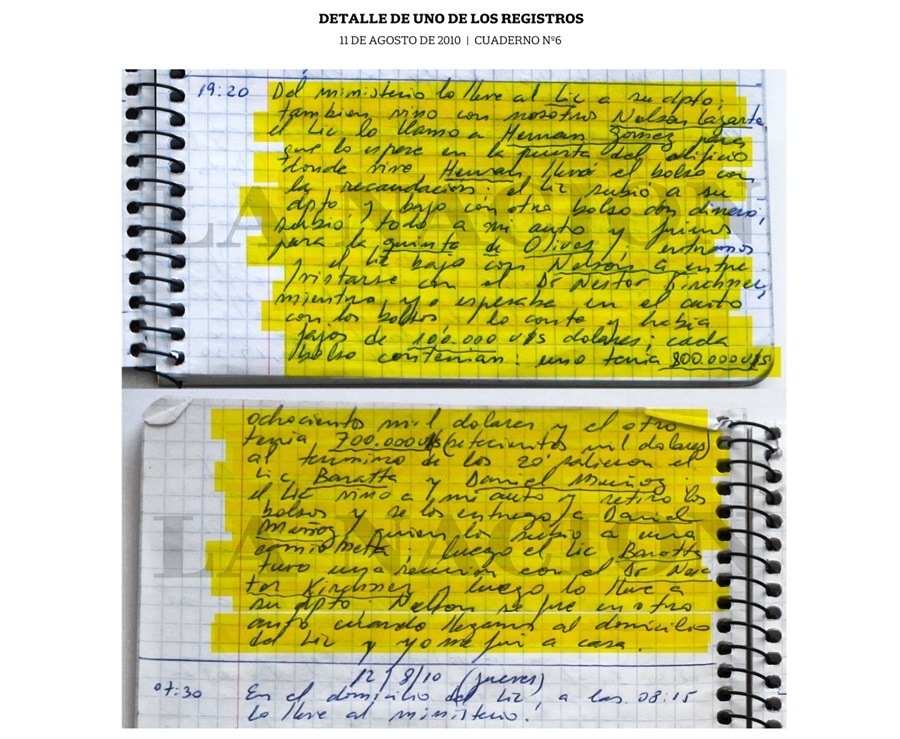 DETALLE DE UNO DE LOS REGISTROS
11 DE AGOSTO DE 2010 | CUADERNO Nº6
19:20 Del ministerio lo lleve al Lic a su dpto;
tambien vino con nosotros Nelson Lazarte
el Lic lo llamo a Hernan Gomez para
que lo espere en la puerta del edificio
donde vive Hernan llevó el bolso con
la recaudación; el Lic subió a su
dpto y bajo con otro bolso con dinero;
subio todo a mi auto y fuimos
para la quinta de Olivos; entramos
y el Lic bajo con Nelson a entre
vistarse con el Dr Nestor Kirchner;
mientras yo esperaba en el auto
con los bolsos lo conte y habia
fajos de 100.000 U$S dolares; cada
bolso contenian: uno tenia 800.000U$S
ochocientos mil dolares y el otro
tenia 700.000U$S (setecientos mil dolares)
al termino de los 20' salieron el
Lic Baratta y Daniel Muñoz;
el Lic vino a mi auto y retiro los
bolsos y se los entrego a Daniel
Muñoz quien los subio a una
camionetta; luego el Lic Baratta
tuvo una reunion con el Dr Nes
tor Kirchner y luego lo lleve a
su dpto. Nelson se fue en otro
auto cuando llegamos al domicilio
del Lic y yo me fui a casa.
12/8/10 (jueves)
07:30 En el domicilio del Lic, a las 08:15
lo lleve al ministerio.
LA NACION
LA NACION